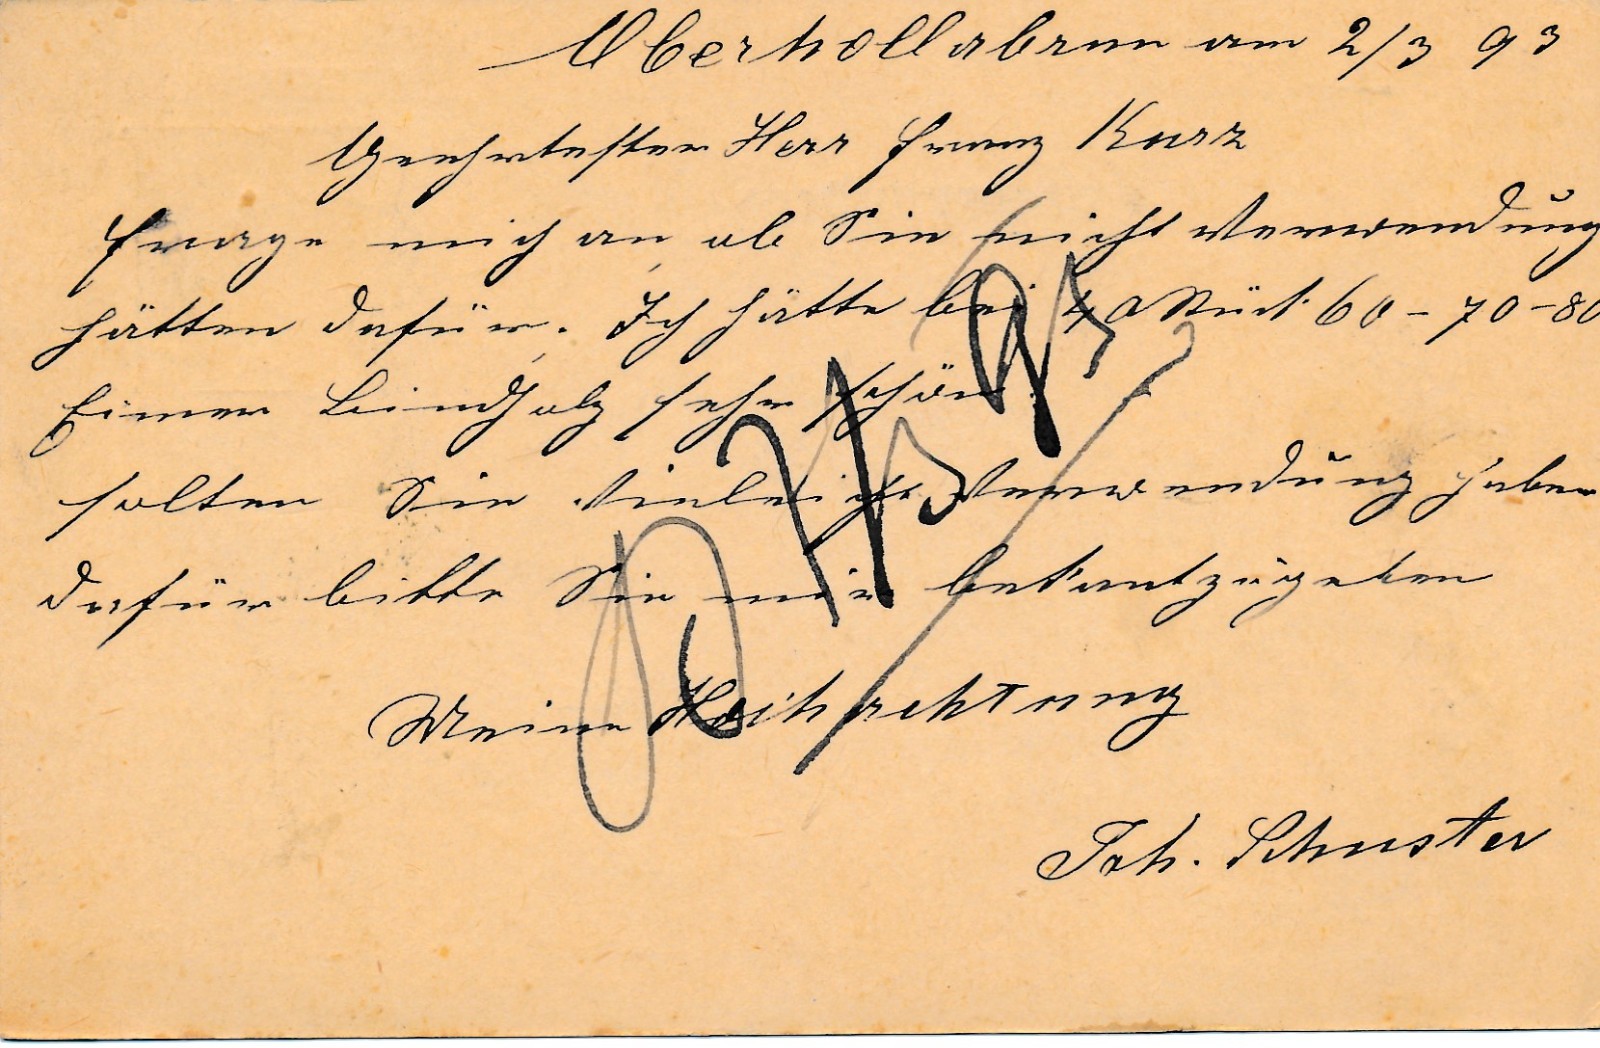 Oberhollabrun am 2/3 93
Geehrtester Herr Franz Kurz
Frage mich an, ob Sie nicht Verwendung
hätten dafür. Ich hätte bei 40 Stück 60 - 70 - 80
Eimer Bindholz sehr schön
solten Sie Vieleicht Verwendung haben
dafür bitte Sie mir bekantzugeben
Meine Hochachtung
Joh. Schuster